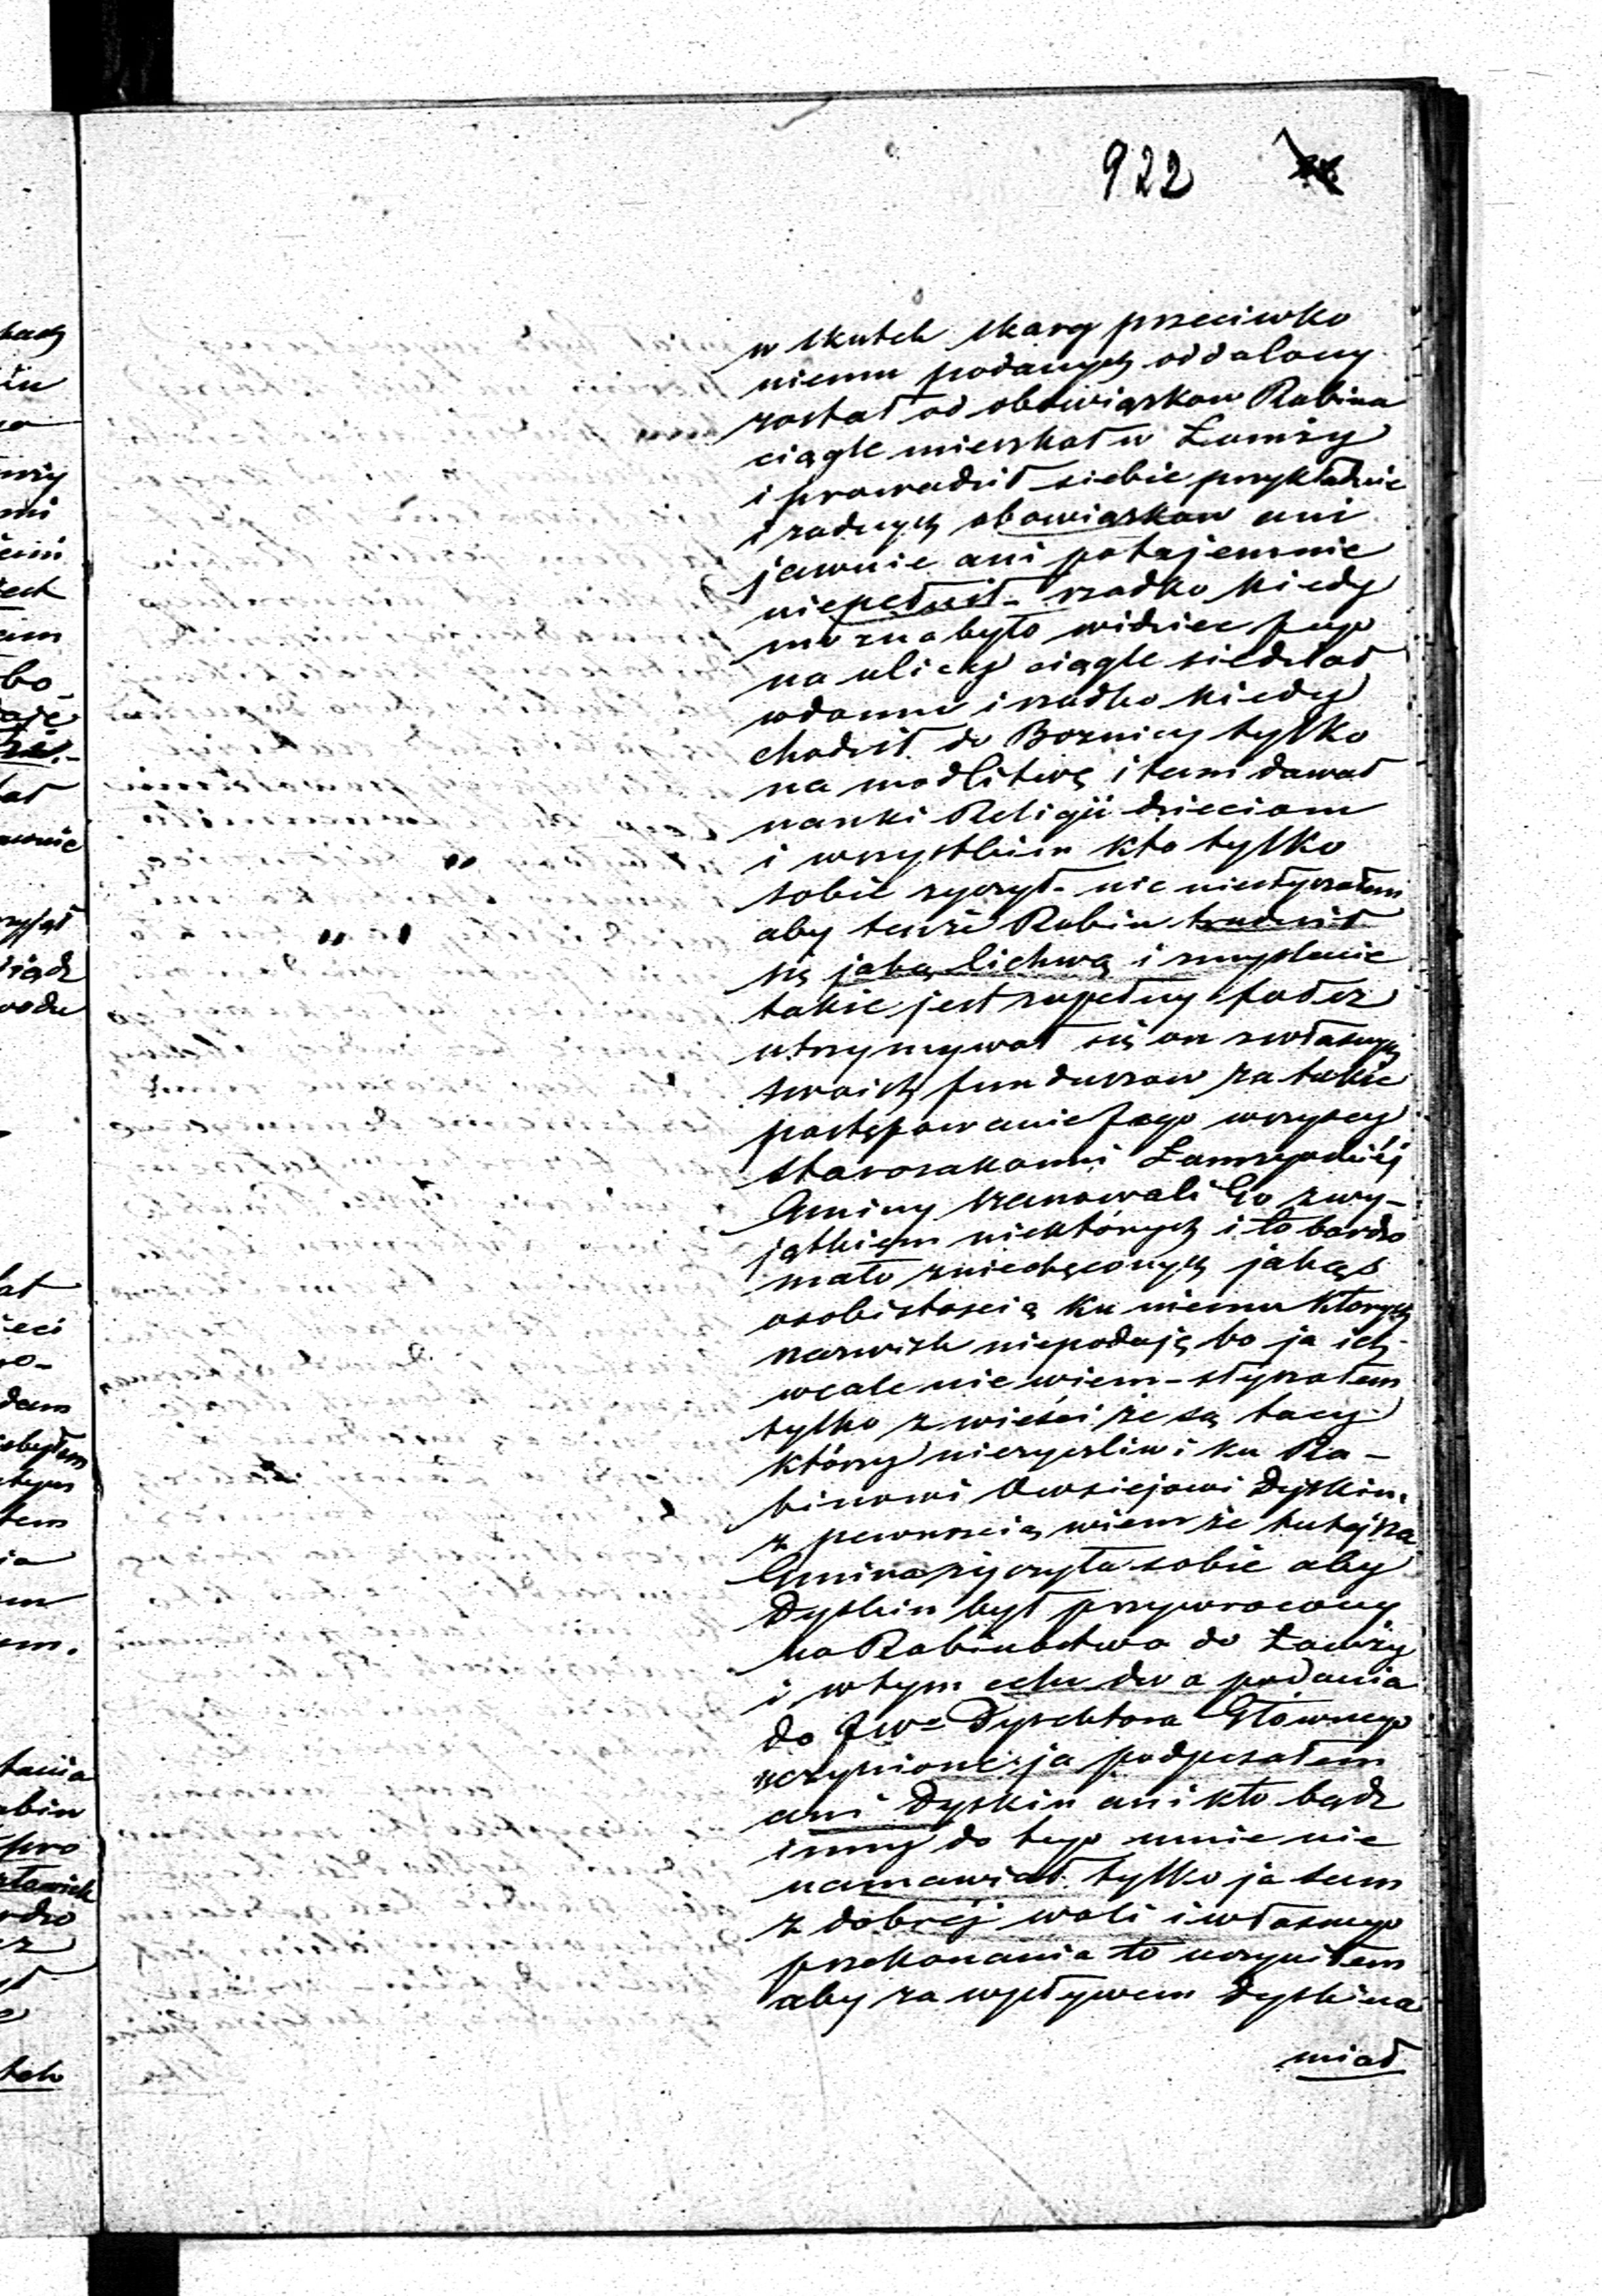 922
w skutek skarg przeciwko
niemu podanych oddalony
został od obowiązkow Rabina
ciągle mieszkał w Łomży
i prowadził siebie przykładnie
i żadnych obowiązkow ani
jawnie ani potajemnie
niepełnił - rzadko kiedy
można było widzieć Jego
na ulicy ciągle siedział
w domu i rzadko kiedy
chodził do Boznicy tylko
na modlitwę i tam dawał
nauki Religii dzieciom
i wszystkim kto tylko
sobie życzył - nie niesłyszałem
aby tenże Rabin trudnił
się jaką lichwą i zmyślenie
takie jest zupełny fałsz
utrzymywał się on z własnych
swoich funduszow za takie
postępowanie Jego wszyscy
starozakonni Łomżyńskiéj
Gminy szanowali Go z wy-
jątkiem niektórych i to bardzo
mało zniechęconych jakąś
osobistością ku niemu ktorych
nazwisk niepodaję bo ja ich
wcale nie wiem - słyszałem
tylko z wieści że są tacy
którzy nieżyczliwi ku Ra-
binowi Owsiejowi Dyskin.
z pewnością wiem że tutejsza
Gmina życzyła sobie aby
Dyskin był przywrocony
na Rabinostwo do Łomży
i w tym celu dwa podania
do JWo Dyrektora Głównego
uczynione ja podpisałem
ani Dyskin ani kto bądz
inny do tego mnie nie
namawiał tylko ja sam
z dobréj woli i własnego
przekonania to uczyniłem
aby za wpływem Dyskina
miał